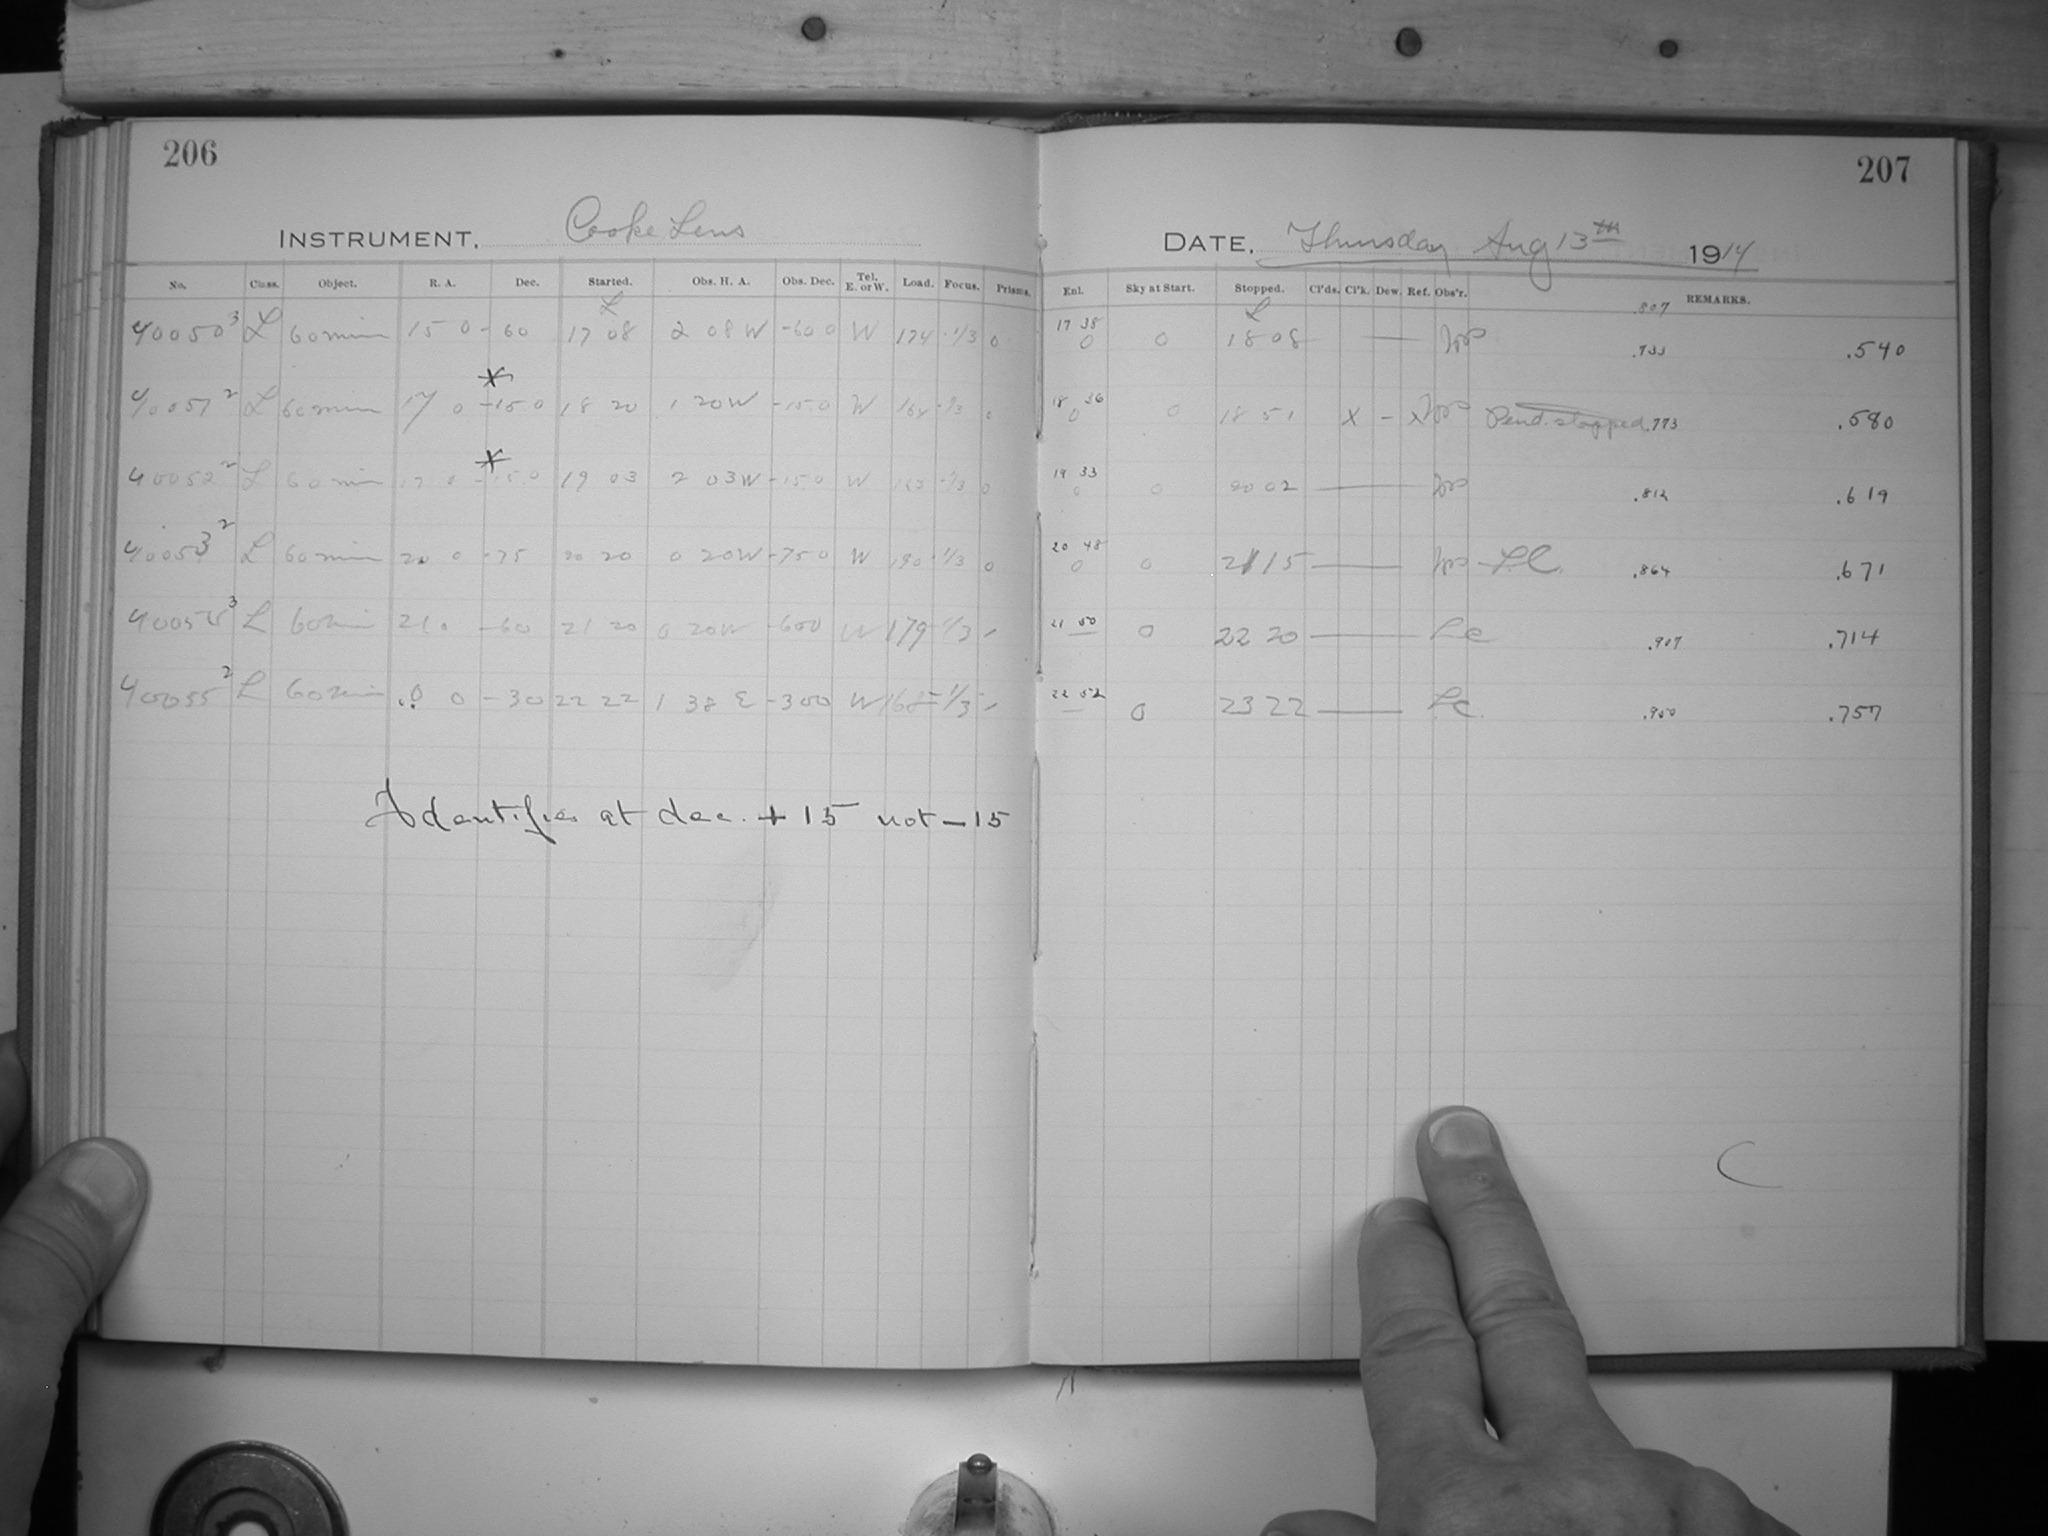 206
207
INSTRUMENT, Cooke Lens
DATE, Thursday Aug 13th 1914
No. Class. Object. R. A. Dec. Started. Obs. H. A. Obs. Dec. Tel. E. or W. Load. Focus. Prisms. Enl. Sky at Start. Stopped. Cl'ds. Cl'k. Dew. Ref. Obs'r. REMARKS.
L L .807
40050 3 L 60 min 15 0 - 60 17 08 2 08 W -60 0 W 174 -1/3 0 17 38 0 0 18 08 — .733 .540
40051 2 L 60 min 17 0 -15 0 18 20 1 20 W -15 0 W 164 -1/3 0 18 36 0 0 18 51 X - X Pend. stopped .773 .580
40052 2 L 60 min 17 0 -15 0 19 03 2 03 W -15 0 W -1/3 0 19 33 0 0 20 02 — .812 .619
40053 2 L 60 min 20 0 -75 20 20 0 20 W -75 0 W 190 -1/3 0 20 48 0 0 21 15 — L.C. .864 .671
40054 3 L 60 min 21 0 -60 21 20 0 20 W -60 0 W 179 -1/3 - 21 50 — 0 22 20 — Lc .907 .714
40055 2 L 60 min 0 0 -30 22 22 1 38 E -30 0 W 168 -1/3 - 22 52 — 0 23 22 — Lc. .950 .757
Identifies at dec. + 15 not - 15